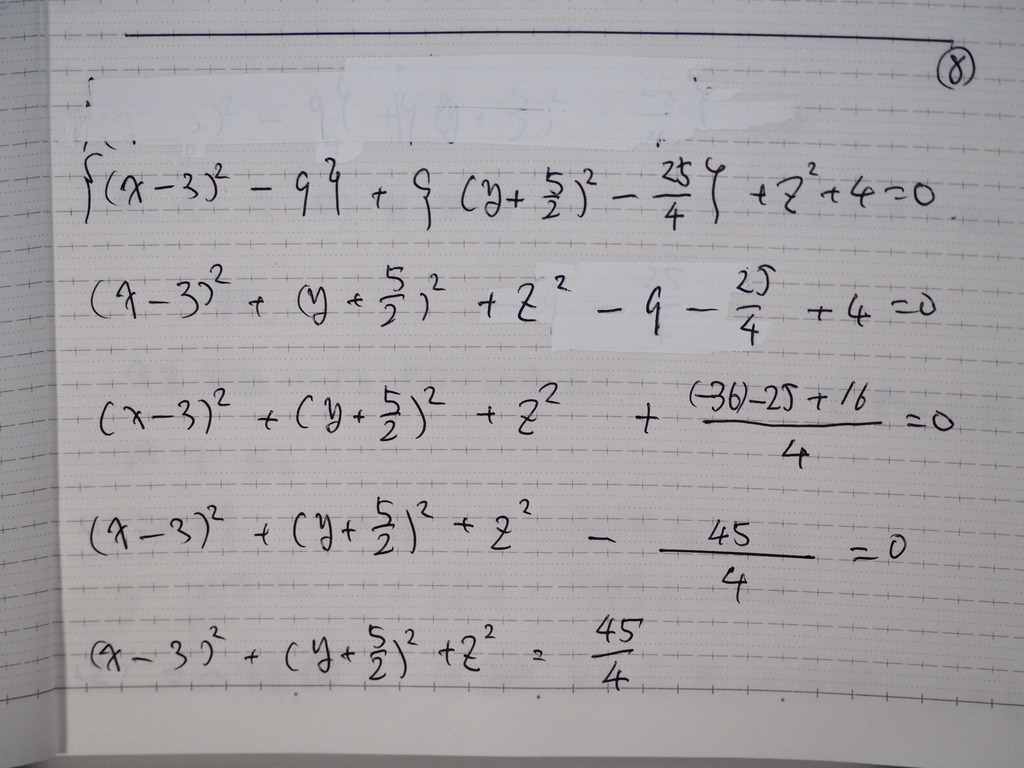 (8)
{(x-3)² - 9} + {(y+5/2)² - 25/4} + z² + 4 = 0
(x-3)² + (y+5/2)² + z² - 9 - 25/4 + 4 = 0
(x-3)² + (y+5/2)² + z² + ((-36)-25+16)/4 = 0
(x-3)² + (y+5/2)² + z² - 45/4 = 0
(x-3)² + (y+5/2)² + z² = 45/4